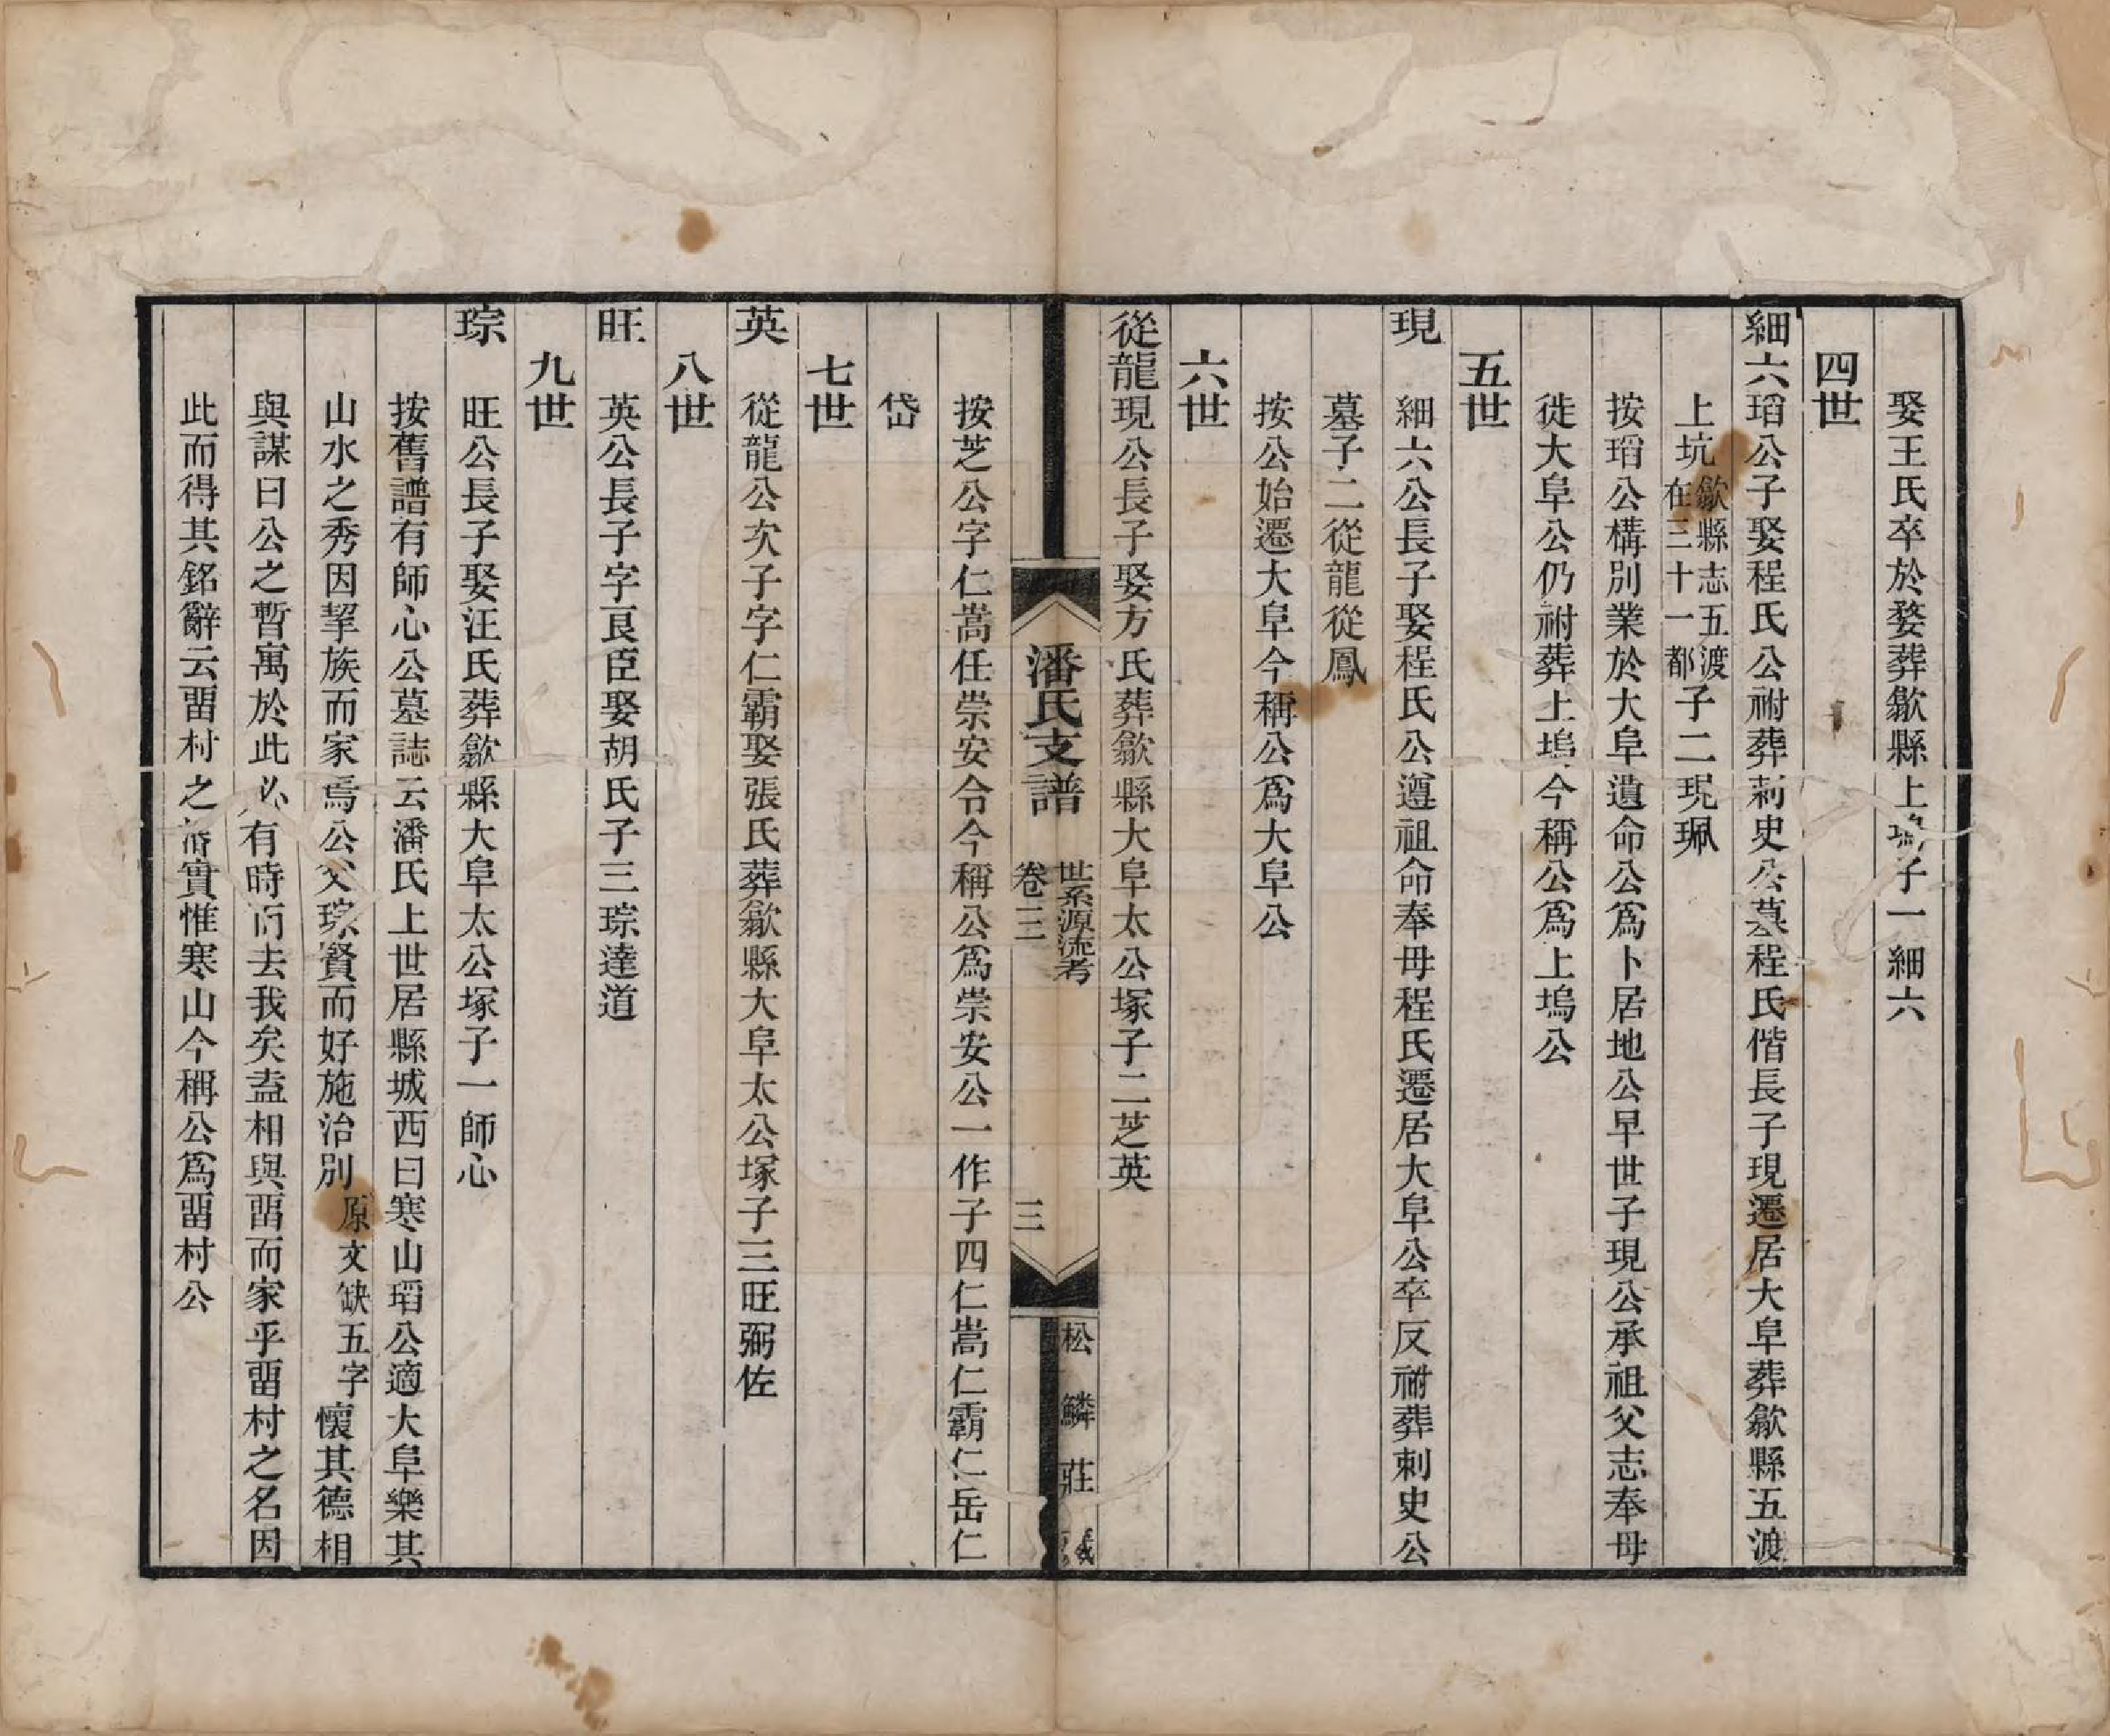 娶王氏卒於婺葬歙縣上塢子一細六
四世
細六瑫公子娶程氏公祔葬刺史公墓程氏偕長子現遷居大阜葬歙縣五渡
上坑歙縣志五渡在三十一都子二現珮
按瑫公構別業於大阜遺命公爲卜居地公早世子現公承祖父志奉母
徙大阜公仍祔葬上塢今稱公爲上塢公
五世
現　細六公長子娶程氏公遵祖命奉母程氏遷居大阜公卒反祔葬刺史公
墓子二從龍從鳳
按公始遷大阜今稱公爲大阜公
六世
從龍現公長子娶方氏葬歙縣大阜太公塚子二芝英
潘氏支譜　世系源流考　卷三　三　松鱗莊
按芝公字仁嵩任崇安令今稱公爲崇安公一作子四仁嵩仁霸仁岳仁
岱
七世
英　從龍公次子字仁霸娶張氏葬歙縣大阜太公塚子三旺弼佐
八世
旺　英公長子字良臣娶胡氏子三琮達道
九世
琮　旺公長子娶汪氏葬歙縣大阜太公塚子一師心
按舊譜有師心公墓誌云潘氏上世居縣城西曰寒山瑫公適大阜樂其
山水之秀因挈族而家焉公父琮賢而好施治別原文缺五字懷其德相
與謀曰公之暫寓於此必有時而去我矣盍相與畱而家乎畱村之名因
此而得其銘辭云畱村之潘實惟寒山今稱公爲畱村公